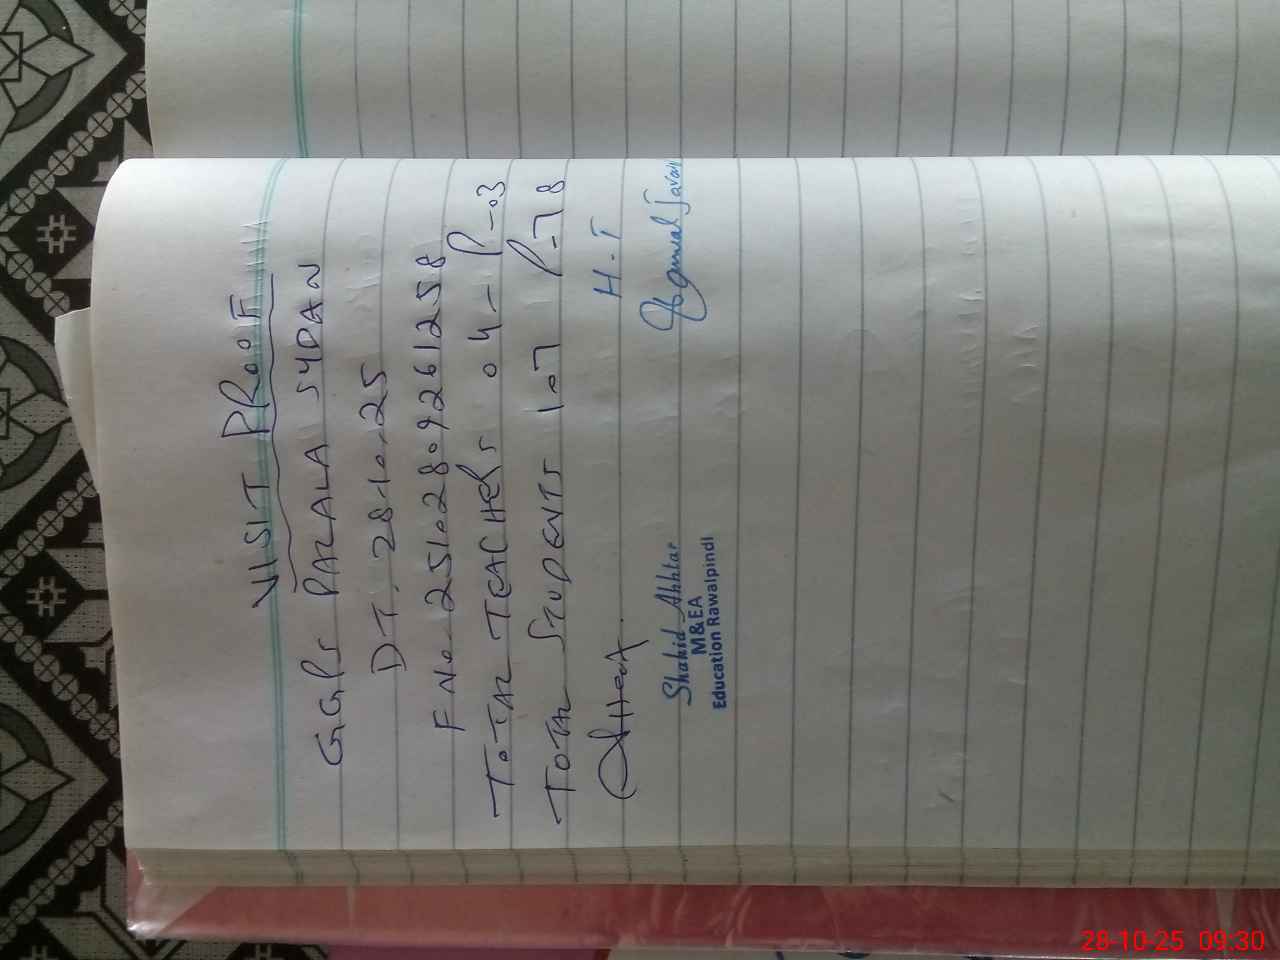 VISIT PROOF
GGPS PALALA SYDAN
DT. 28.10.25
F No. 25102809261258
TOTAL TEACHERS 04 - P-03
TOTAL STUDENTS 107 P-78
H.T
Shahid Akhtar
M&EA
Education Rawalpindi
28-10-25 09:30